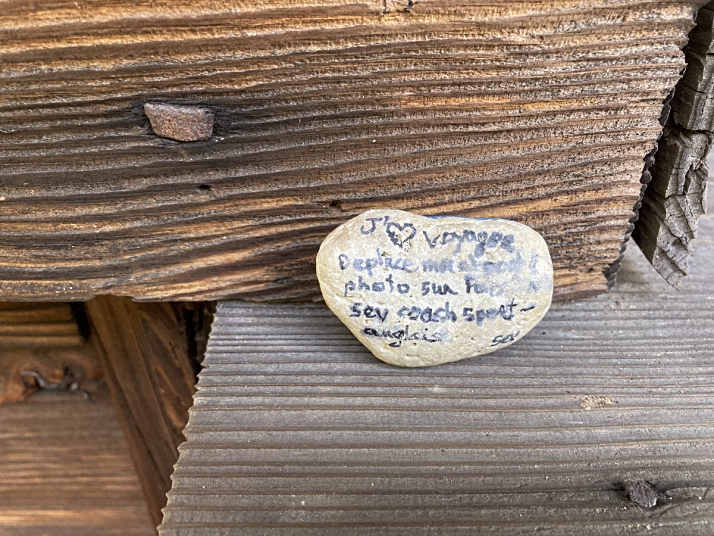 J'♡ voyager
Deplace moi
photo sur
sev coach sport-
anglais
sev